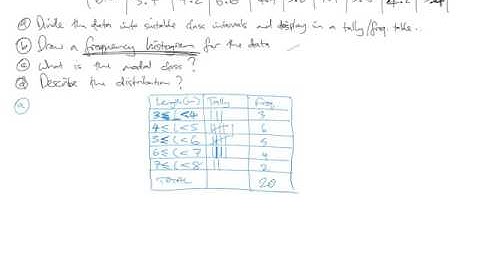 (a) Divide the data into suitable class intervals and display in a tally/freq. table.
(b) Draw a frequency histogram for the data
(c) What is the modal class?
(d) Describe the distribution?
(a)
Length (m) Tally Freq.
3 ≤ L < 4 || 3
4 ≤ L < 5 |||| | 6
5 ≤ L < 6 |||| 5
6 ≤ L < 7 |||| 4
7 ≤ L < 8 || 2
TOTAL 20